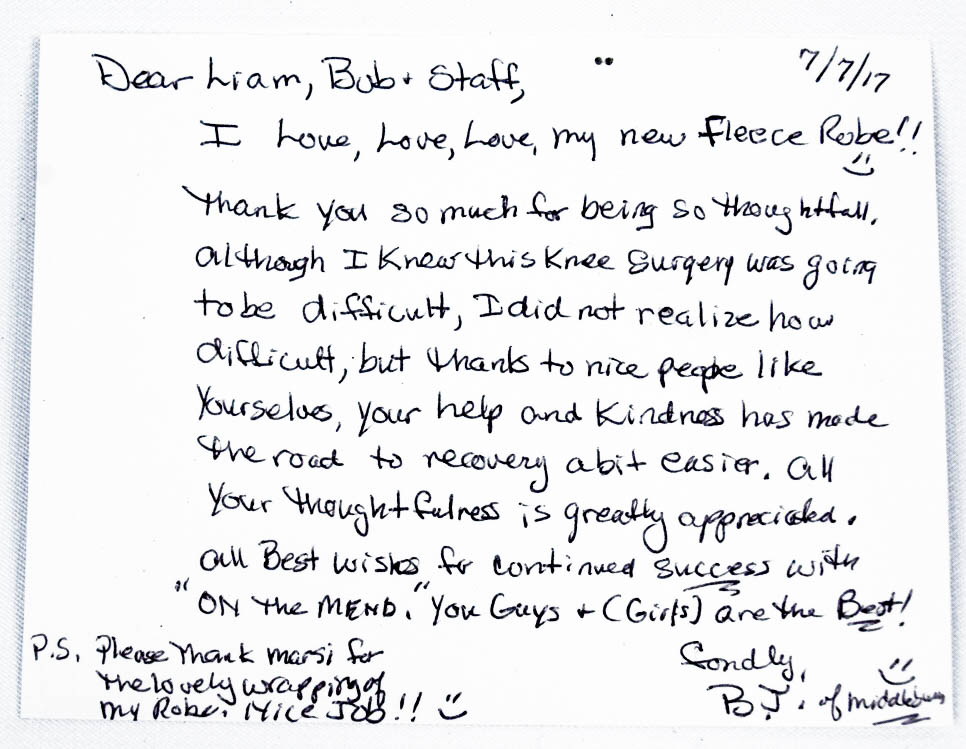 7/7/17
Dear Liam, Bob + Staff,
I Love, Love, Love, my new Fleece Robe!!
Thank you so much for being so thoughtfull.
Although I Knew this Knee Surgery was going
to be difficult, I did not realize how
difficult, but thanks to nice people like
Yourselves, your help and Kindness has made
the road to recovery a bit easier. All
Your thoughtfulness is greatly appreciated.
All Best Wishes for continued success with
"ON the MEND." You Guys + (Girls) are the Best!
Fondly,
B.J. of
P.S. Please Thank Marsi for
the lovely wrapping of
my Robe. Nice Job!!